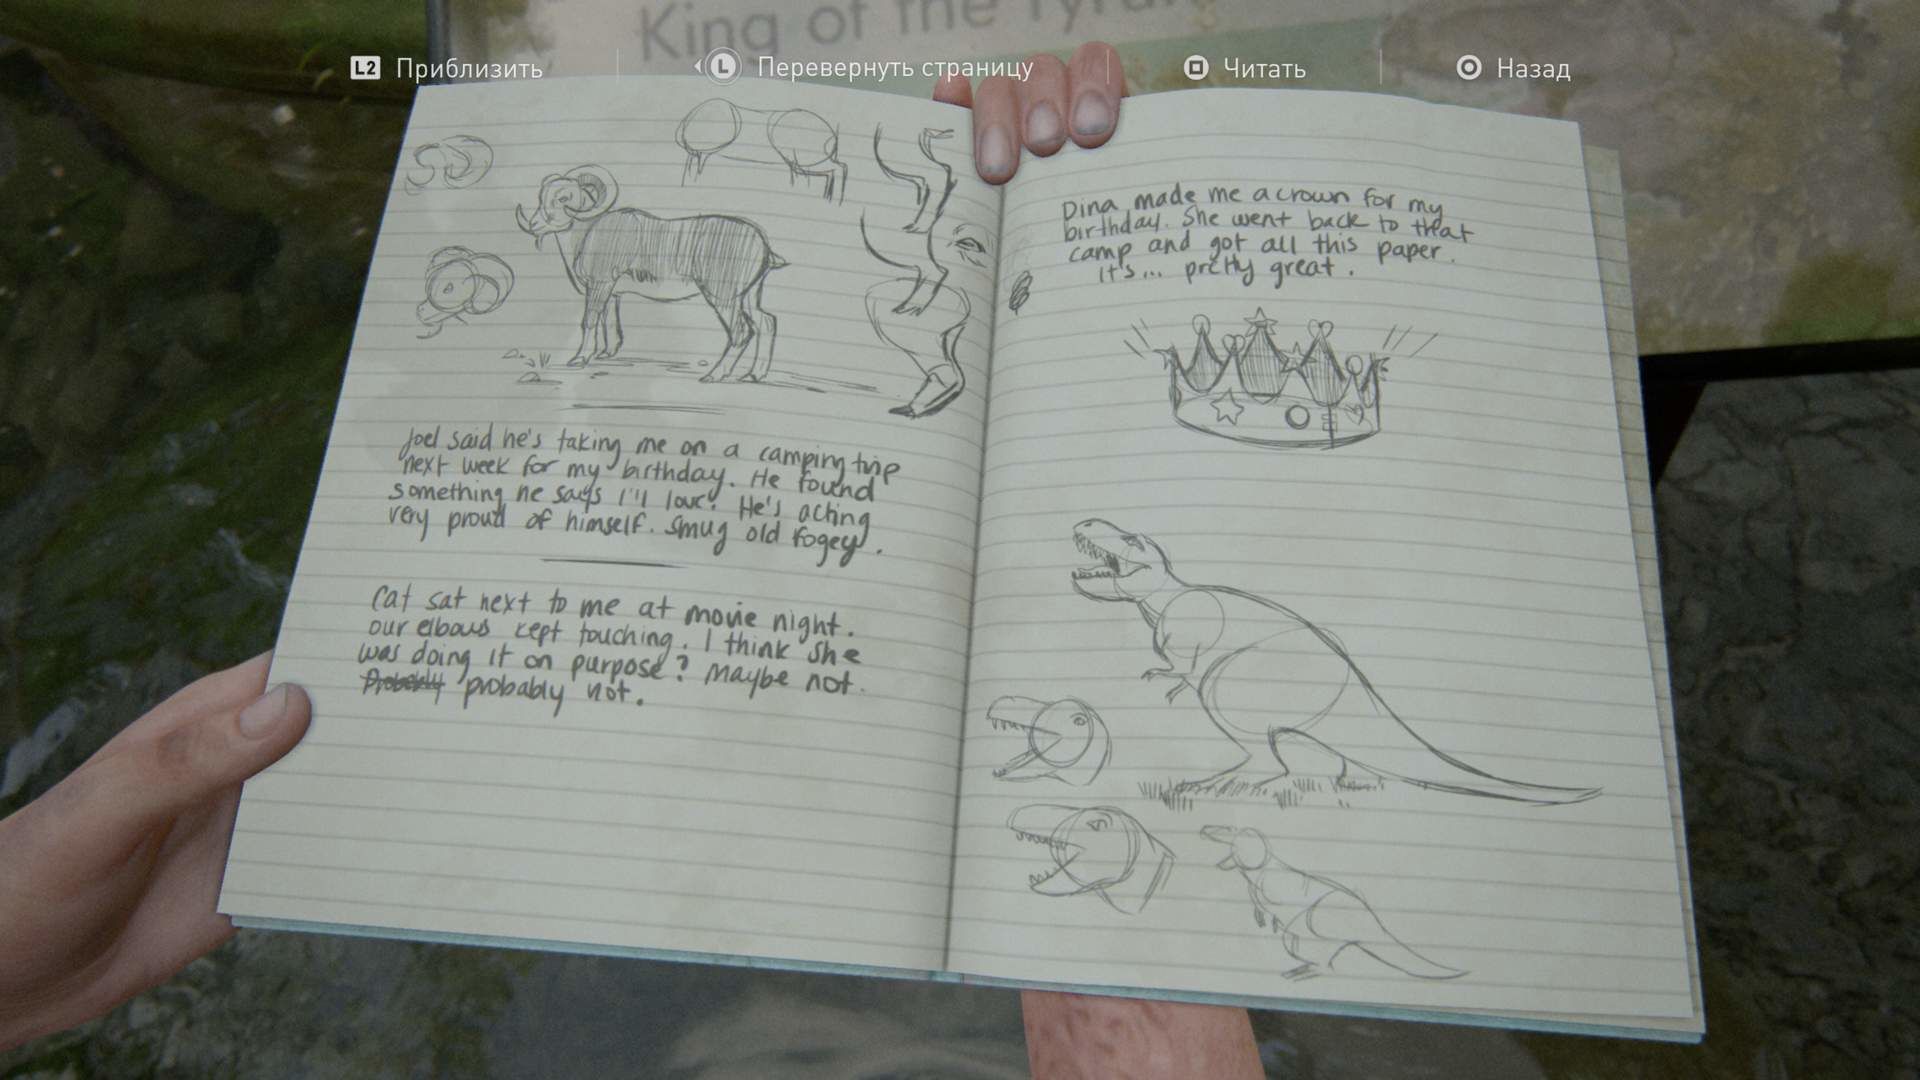 King of the Tyran
L2 Приблизить
L Перевернуть страницу
Читать
Назад
Joel said he's taking me on a camping trip
next week for my birthday. He found
something he says I'll love. He's acting
very proud of himself. Smug old fogey.
Cat sat next to me at movie night.
our elbows kept touching. I think she
was doing it on purpose? Maybe not.
Probably probably not.
Dina made me a crown for my
birthday. She went back to that
camp and got all this paper.
It's... pretty great.